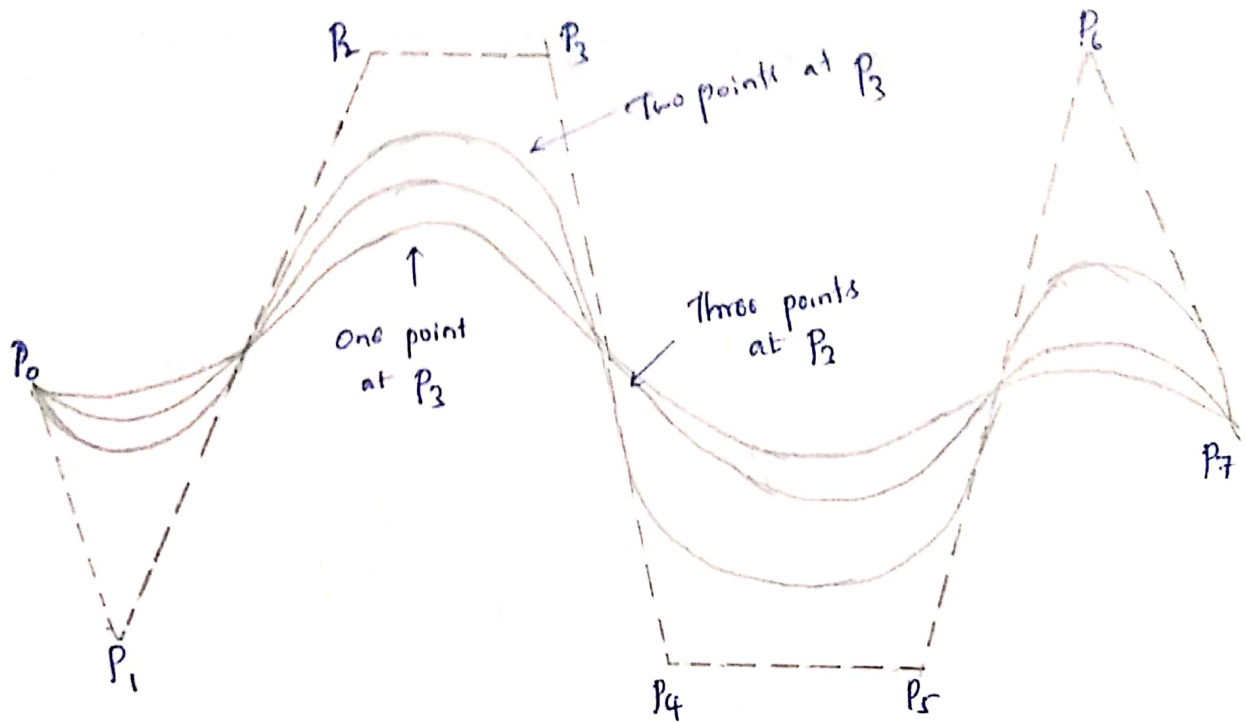 P2
P3
P6
Two points at P3
One point
at P3
Three points
at P2
P0
P1
P4
P5
P7